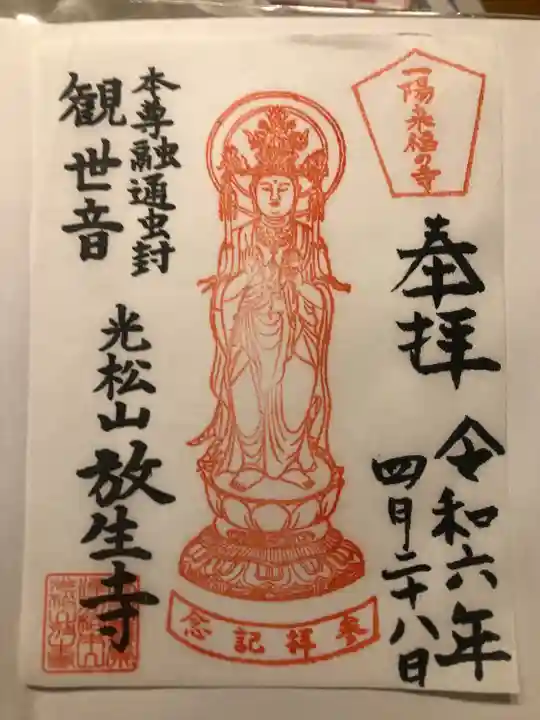 一陽来福の寺
奉拝
令和六年
四月二十八日
本尊融通虫封
観世音
光松山放生寺
参拝記念